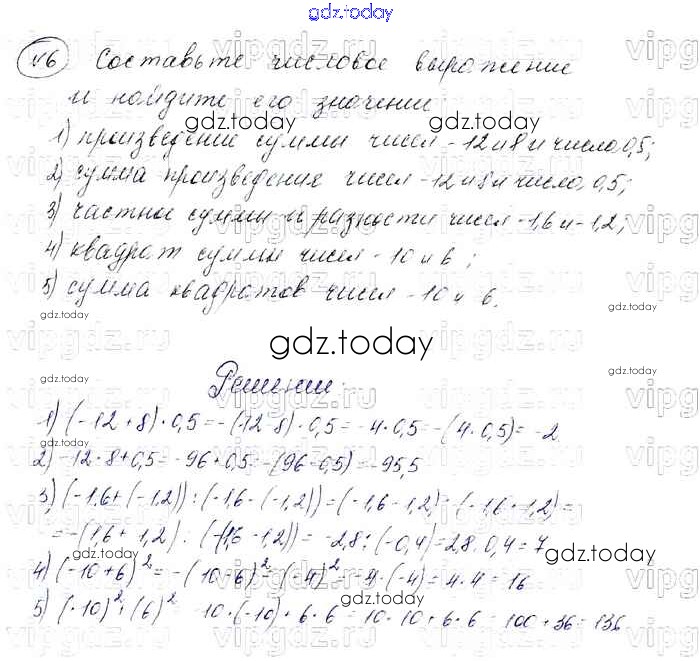 gdz.today
№6 Составьте числовое выражение
и найдите его значение
gdz.today gdz.today
1) произведение суммы чисел -12 и 8 и числа 0,5;
2) сумма произведения чисел -12 и 8 и числа 0,5;
3) частное суммы и разности чисел -1,6 и -1,2;
4) квадрат суммы чисел -10 и 6;
5) сумма квадратов чисел -10 и 6.
gdz.today gdz.today
gdz.today
Решение:
gdz.today gdz.today
1) (-12+8)·0,5=-(12-8)·0,5=-4·0,5=-(4·0,5)=-2
2) -12·8+0,5=-96+0,5=-(96-0,5)=-95,5
3) (-1,6+(-1,2)):(-1,6-(-1,2))=(-1,6-1,2):(-1,6+1,2)=
=-(1,6+1,2):(-(1,6-1,2))=-2,8:(-0,4)=2,8:0,4=7
gdz.today gdz.today
4) (-10+6)²=-(10-6)²=(-4)²=-4·(-4)=4·4=16
gdz.today
5) (-10)²+(6)² -10·(-10)+6·6=10·10+6·6=100+36=136
gdz.today gdz.today
vipgdz.ru